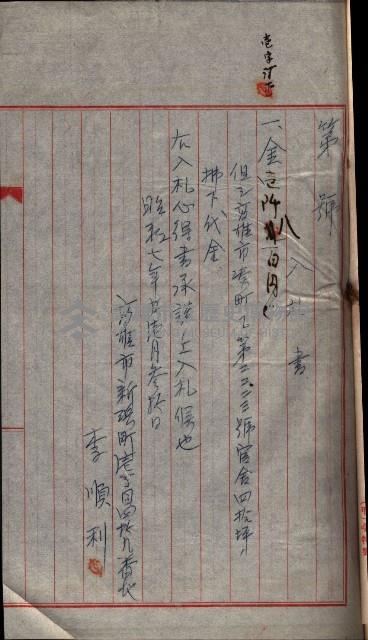 壱字訂正
第 號
入札書
一、金壱阡八百円也
但シ高雄市湊町乙第二二三號官舎四拾坪ノ
拂下代金
右入札心得書承諾ノ上入札候也
昭和七年壱月参拾日
高雄市新濱町壱丁目四拾九番地
李順利